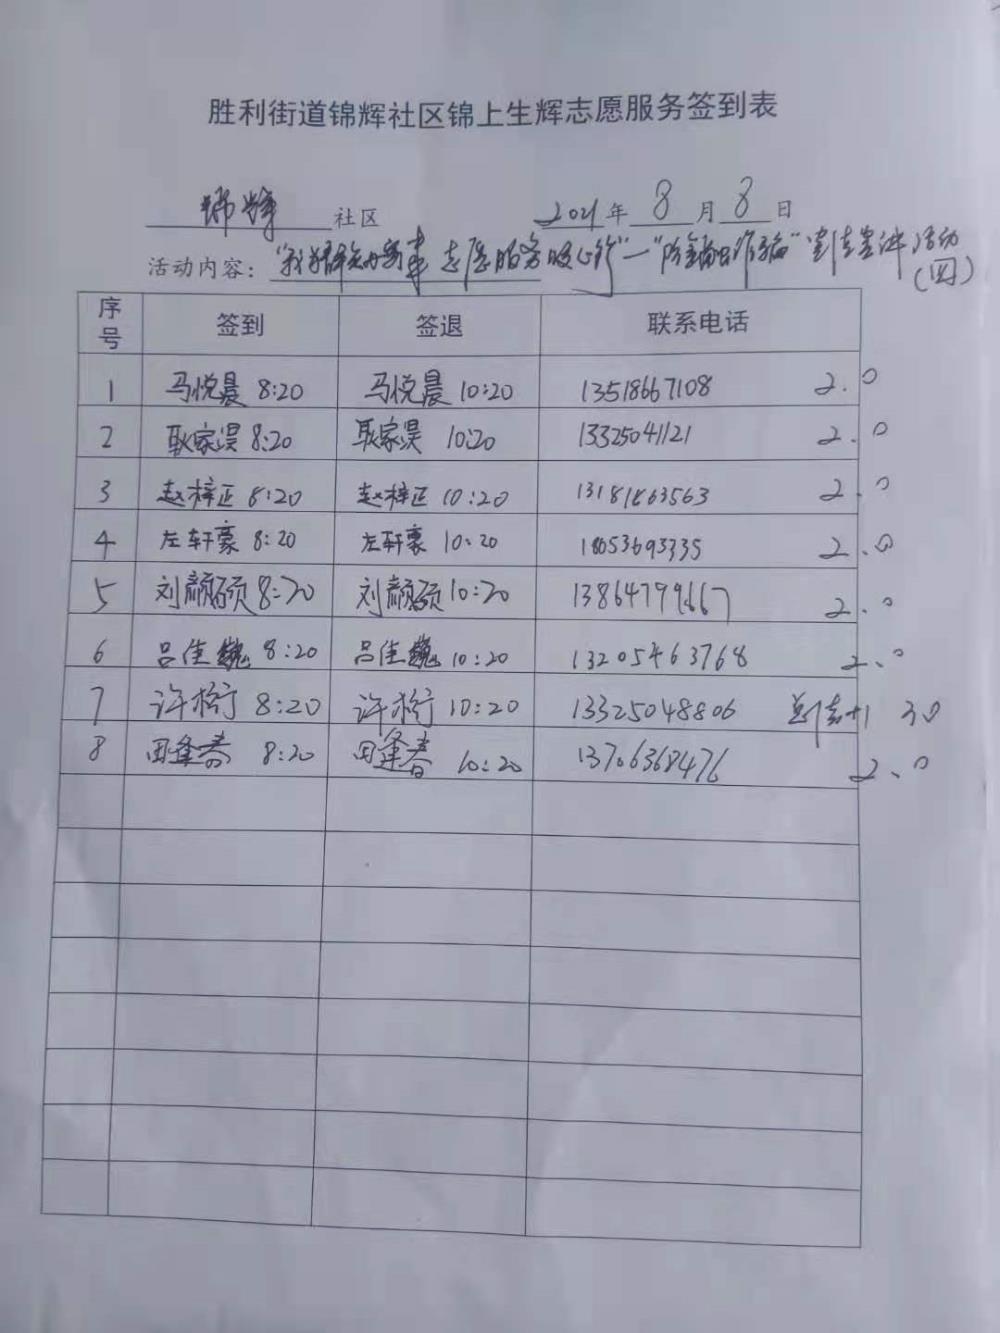 胜利街道锦辉社区锦上生辉志愿服务签到表
锦辉 社区 2021 年 8 月 8 日
活动内容: "我为群众办实事 志愿服务暖心行"—"防电诈骗"宣讲活动
(四)
序号 签到 签退 联系电话
1 马悦晨 8:20 马悦晨 10:20 13518667108 2.0
2 耿家淏 8:20 耿家淏 10:20 13325041121 2.0
3 赵梓正 8:20 赵梓正 10:20 13181863563 2.0
4 左轩豪 8:20 左轩豪 10:20 18053693335 2.0
5 刘颜硕 8:20 刘颜硕 10:20 13864799667 2.0
6 吕佳巍 8:20 吕佳巍 10:20 13205463768 2.0
7 许 8:20 许 10:20 13325048806 +1 3.0
8 田逢春 8:20 田逢春 10:20 13706368476 2.0